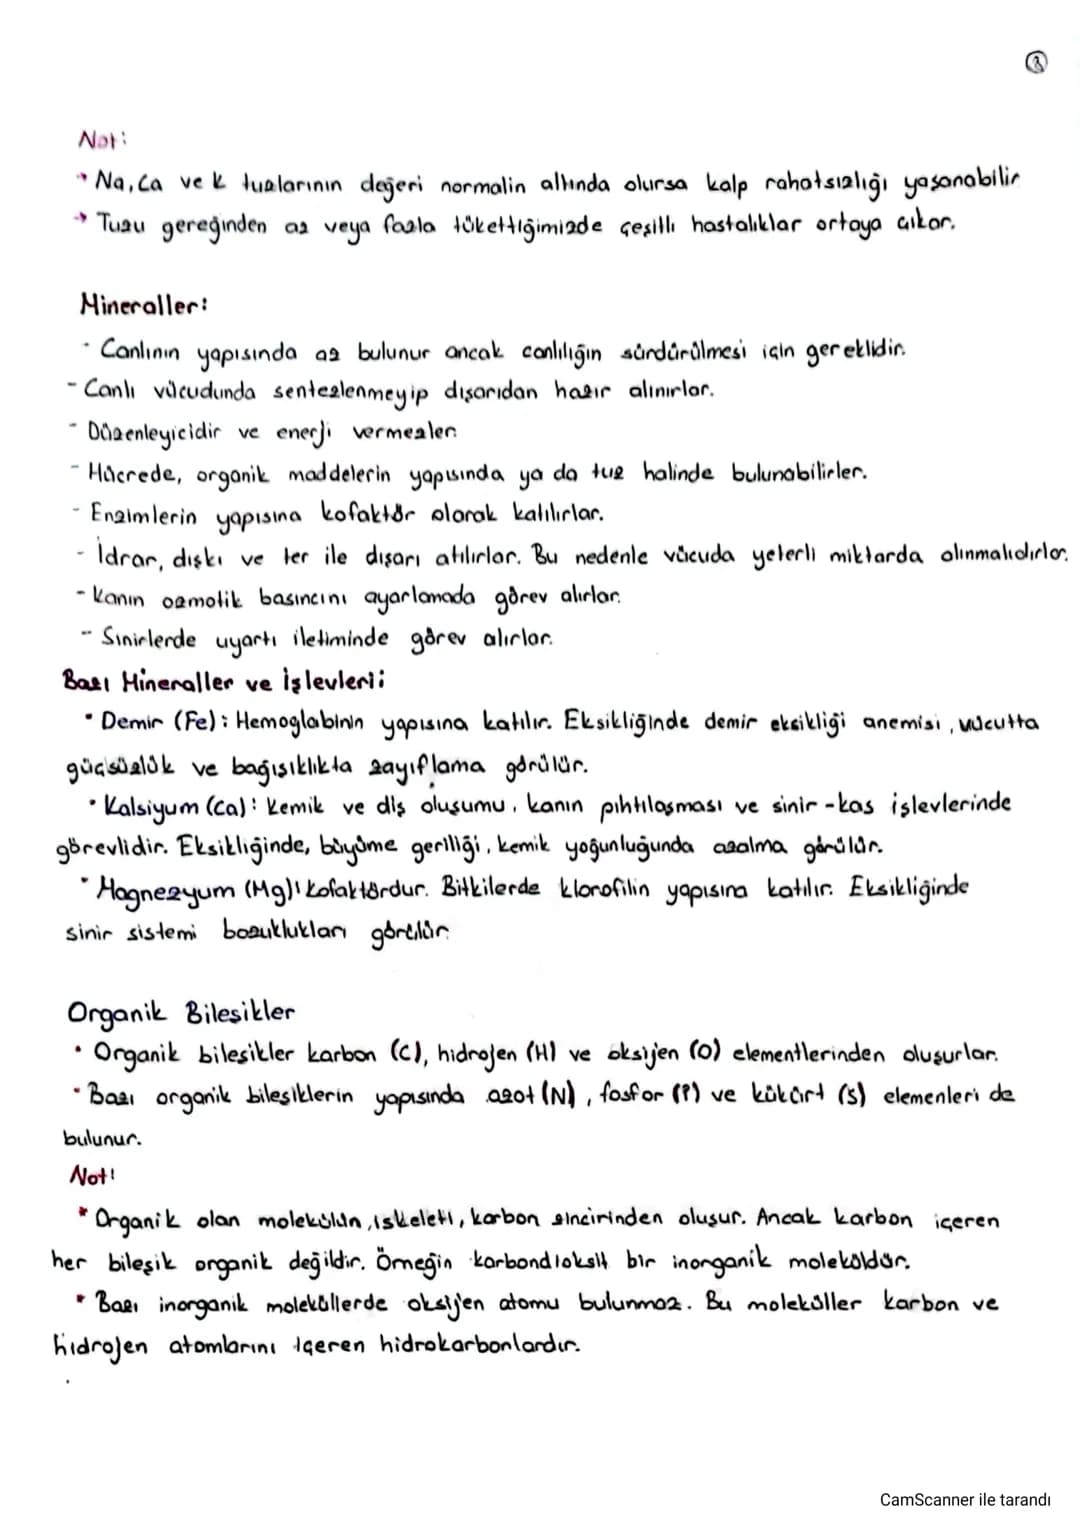 3
Not:
→ Na, Ca ve K tuzlarının değeri normalin altında olursa kalp rahatsızlığı yaşanabilir
→ Tuzu gereğinden az veya fazla tükettiğimizde çeşitli hastalıklar ortaya çıkar.
Mineraller:
- Canlının yapısında az bulunur ancak canlılığın sürdürülmesi için gereklidir.
- Canlı vücudunda sentezlenmeyip dışarıdan hazır alınırlar.
- Düzenleyicidir ve enerji vermezler.
- Hücrede, organik maddelerin yapısında ya da tuz halinde bulunabilirler.
- Enzimlerin yapısına kofaktör olarak katılırlar.
- İdrar, dışkı ve ter ile dışarı atılırlar. Bu nedenle vücuda yeterli miktarda alınmalıdırlar.
- Kanın ozmotik basıncını ayarlamada görev alırlar.
- Sinirlerde uyartı iletiminde görev alırlar.
Bazı Mineraller ve İşlevleri:
• Demir (Fe): Hemoglabinin yapısına katılır. Eksikliğinde demir eksikliği anemisi, vücutta
güçsüzlük ve bağışıklıkta zayıflama görülür.
• Kalsiyum (Ca): Kemik ve diş oluşumu, kanın pıhtılaşması ve sinir-kas işlevlerinde
görevlidir. Eksikliğinde, büyüme geriliği, kemik yoğunluğunda azalma görülür.
• Magnezyum (Mg): Kofaktördur. Bitkilerde klorofilin yapısına katılır. Eksikliğinde
sinir sistemi bozuklukları görülür.
Organik Bileşikler
• Organik bileşikler karbon (C), hidrojen (H) ve oksijen (O) elementlerinden oluşurlar.
• Bazı organik bileşiklerin yapısında azot (N), fosfor (P) ve kükürt (S) elemenleri de
bulunur.
Not:
* Organik olan molekülün, iskeleti, karbon zincirinden oluşur. Ancak karbon içeren
her bileşik organik değildir. Örneğin karbondioksit bir inorganik moleküldür.
* Bazı inorganik moleküllerde oksijen atomu bulunmaz. Bu moleküller karbon ve
hidrojen atomlarını içeren hidrokarbonlardır.
CamScanner ile tarandı